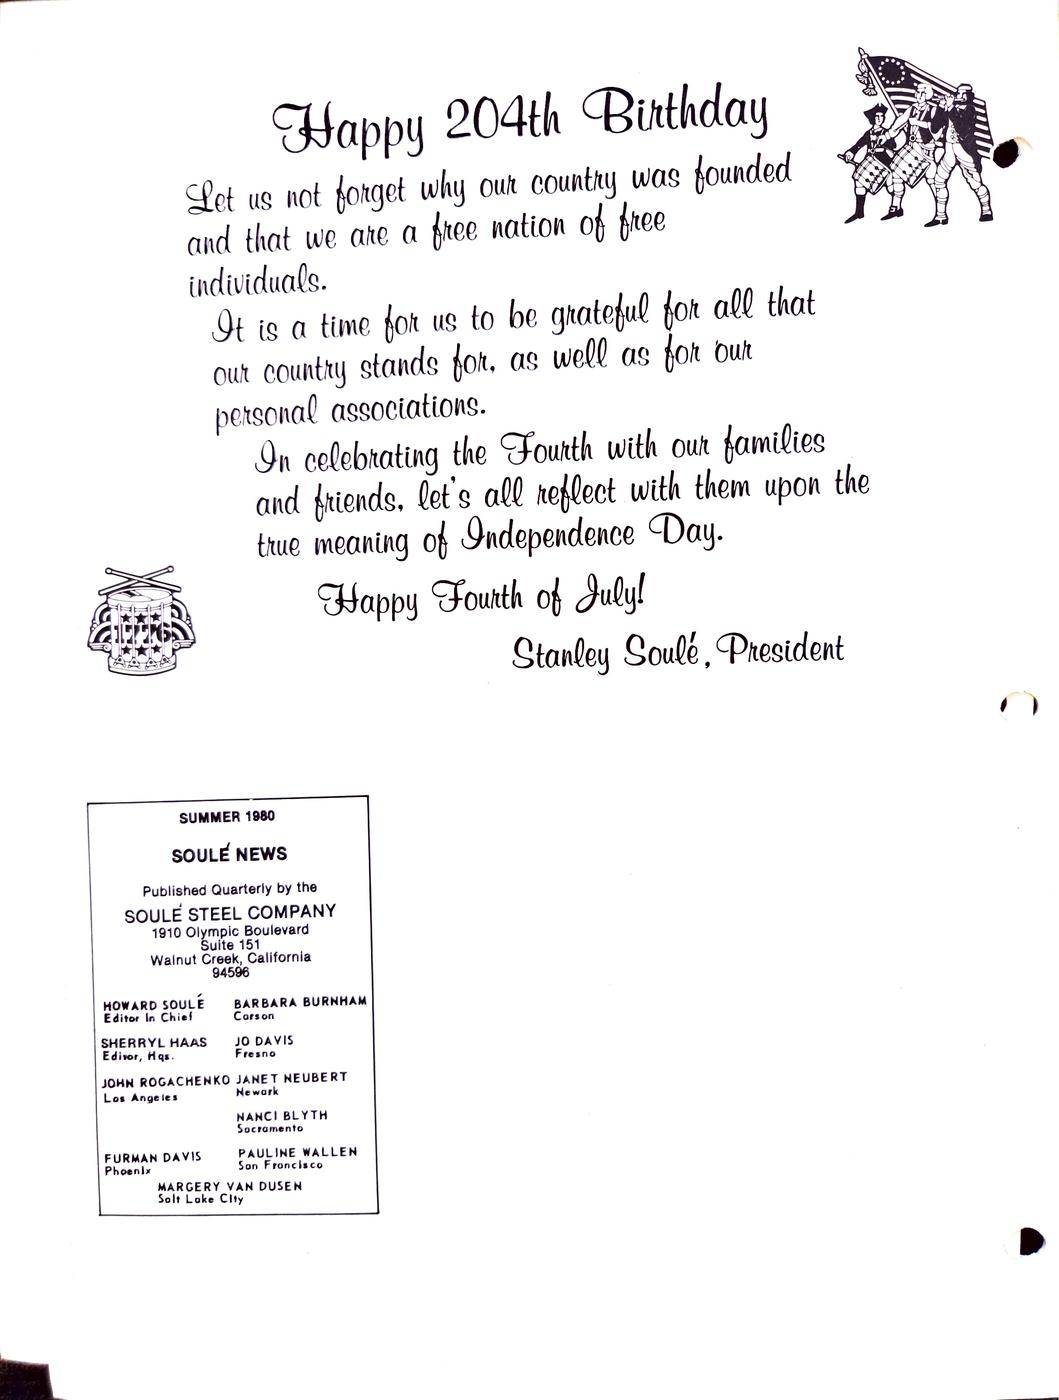 Happy 204th Birthday
Let us not forget why our country was founded
and that we are a free nation of free
individuals.
It is a time for us to be grateful for all that
our country stands for, as well as for our
personal associations.
In celebrating the Fourth with our families
and friends, let's all reflect with them upon the
true meaning of Independence Day.
Happy Fourth of July!
Stanley Soulé, President
1776
SUMMER 1980
SOULÉ NEWS
Published Quarterly by the
SOULÉ STEEL COMPANY
1910 Olympic Boulevard
Suite 151
Walnut Creek, California
94596
HOWARD SOULÉ
Editor In Chief
BARBARA BURNHAM
Carson
SHERRYL HAAS
Editor, Hqs.
JO DAVIS
Fresno
JOHN ROGACHENKO
Los Angeles
JANET NEUBERT
Newark
NANCI BLYTH
Sacramento
FURMAN DAVIS
Phoenix
PAULINE WALLEN
San Francisco
MARGERY VAN DUSEN
Salt Lake City